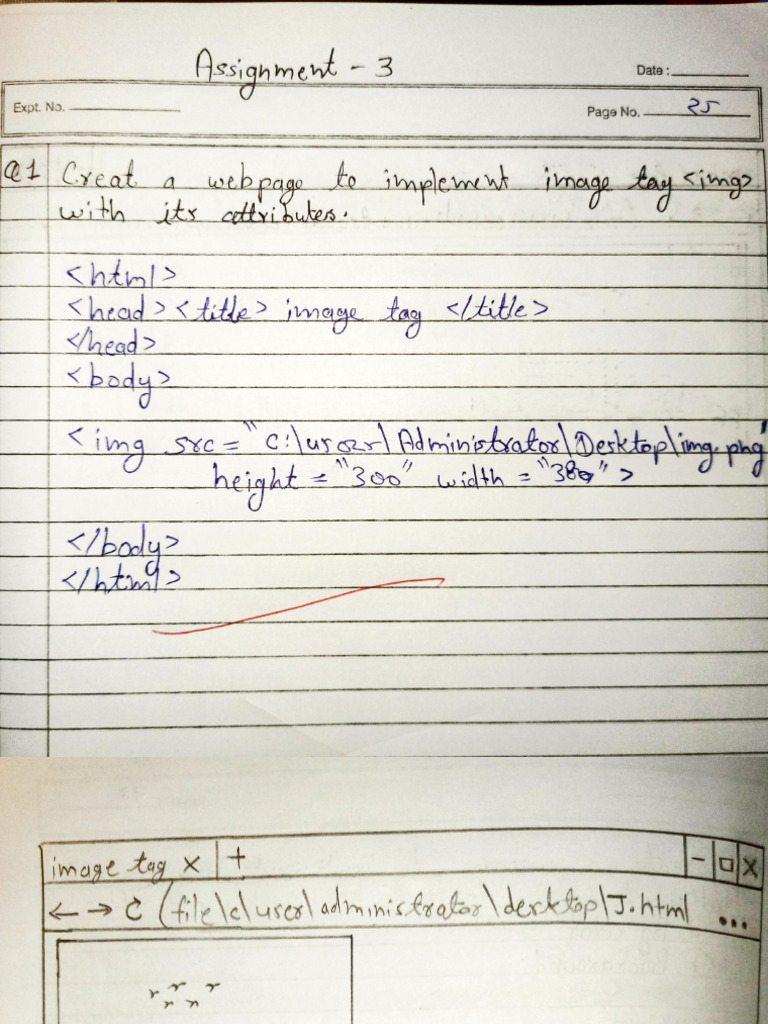 Assignment - 3
Date :
Expt. No.
Page No. 25
Q1 Creat a webpage to implement image tag <img>
with its attributes.
<html>
<head> <title> image tag </title>
</head>
<body>
<img src = "C:\user\Administrator\Desktop\img.png"
height = "300" width = "380" >
</body>
</html>
image tag x | + - □ x
← → C (file\c\user\administrator\desktop\J.html ...